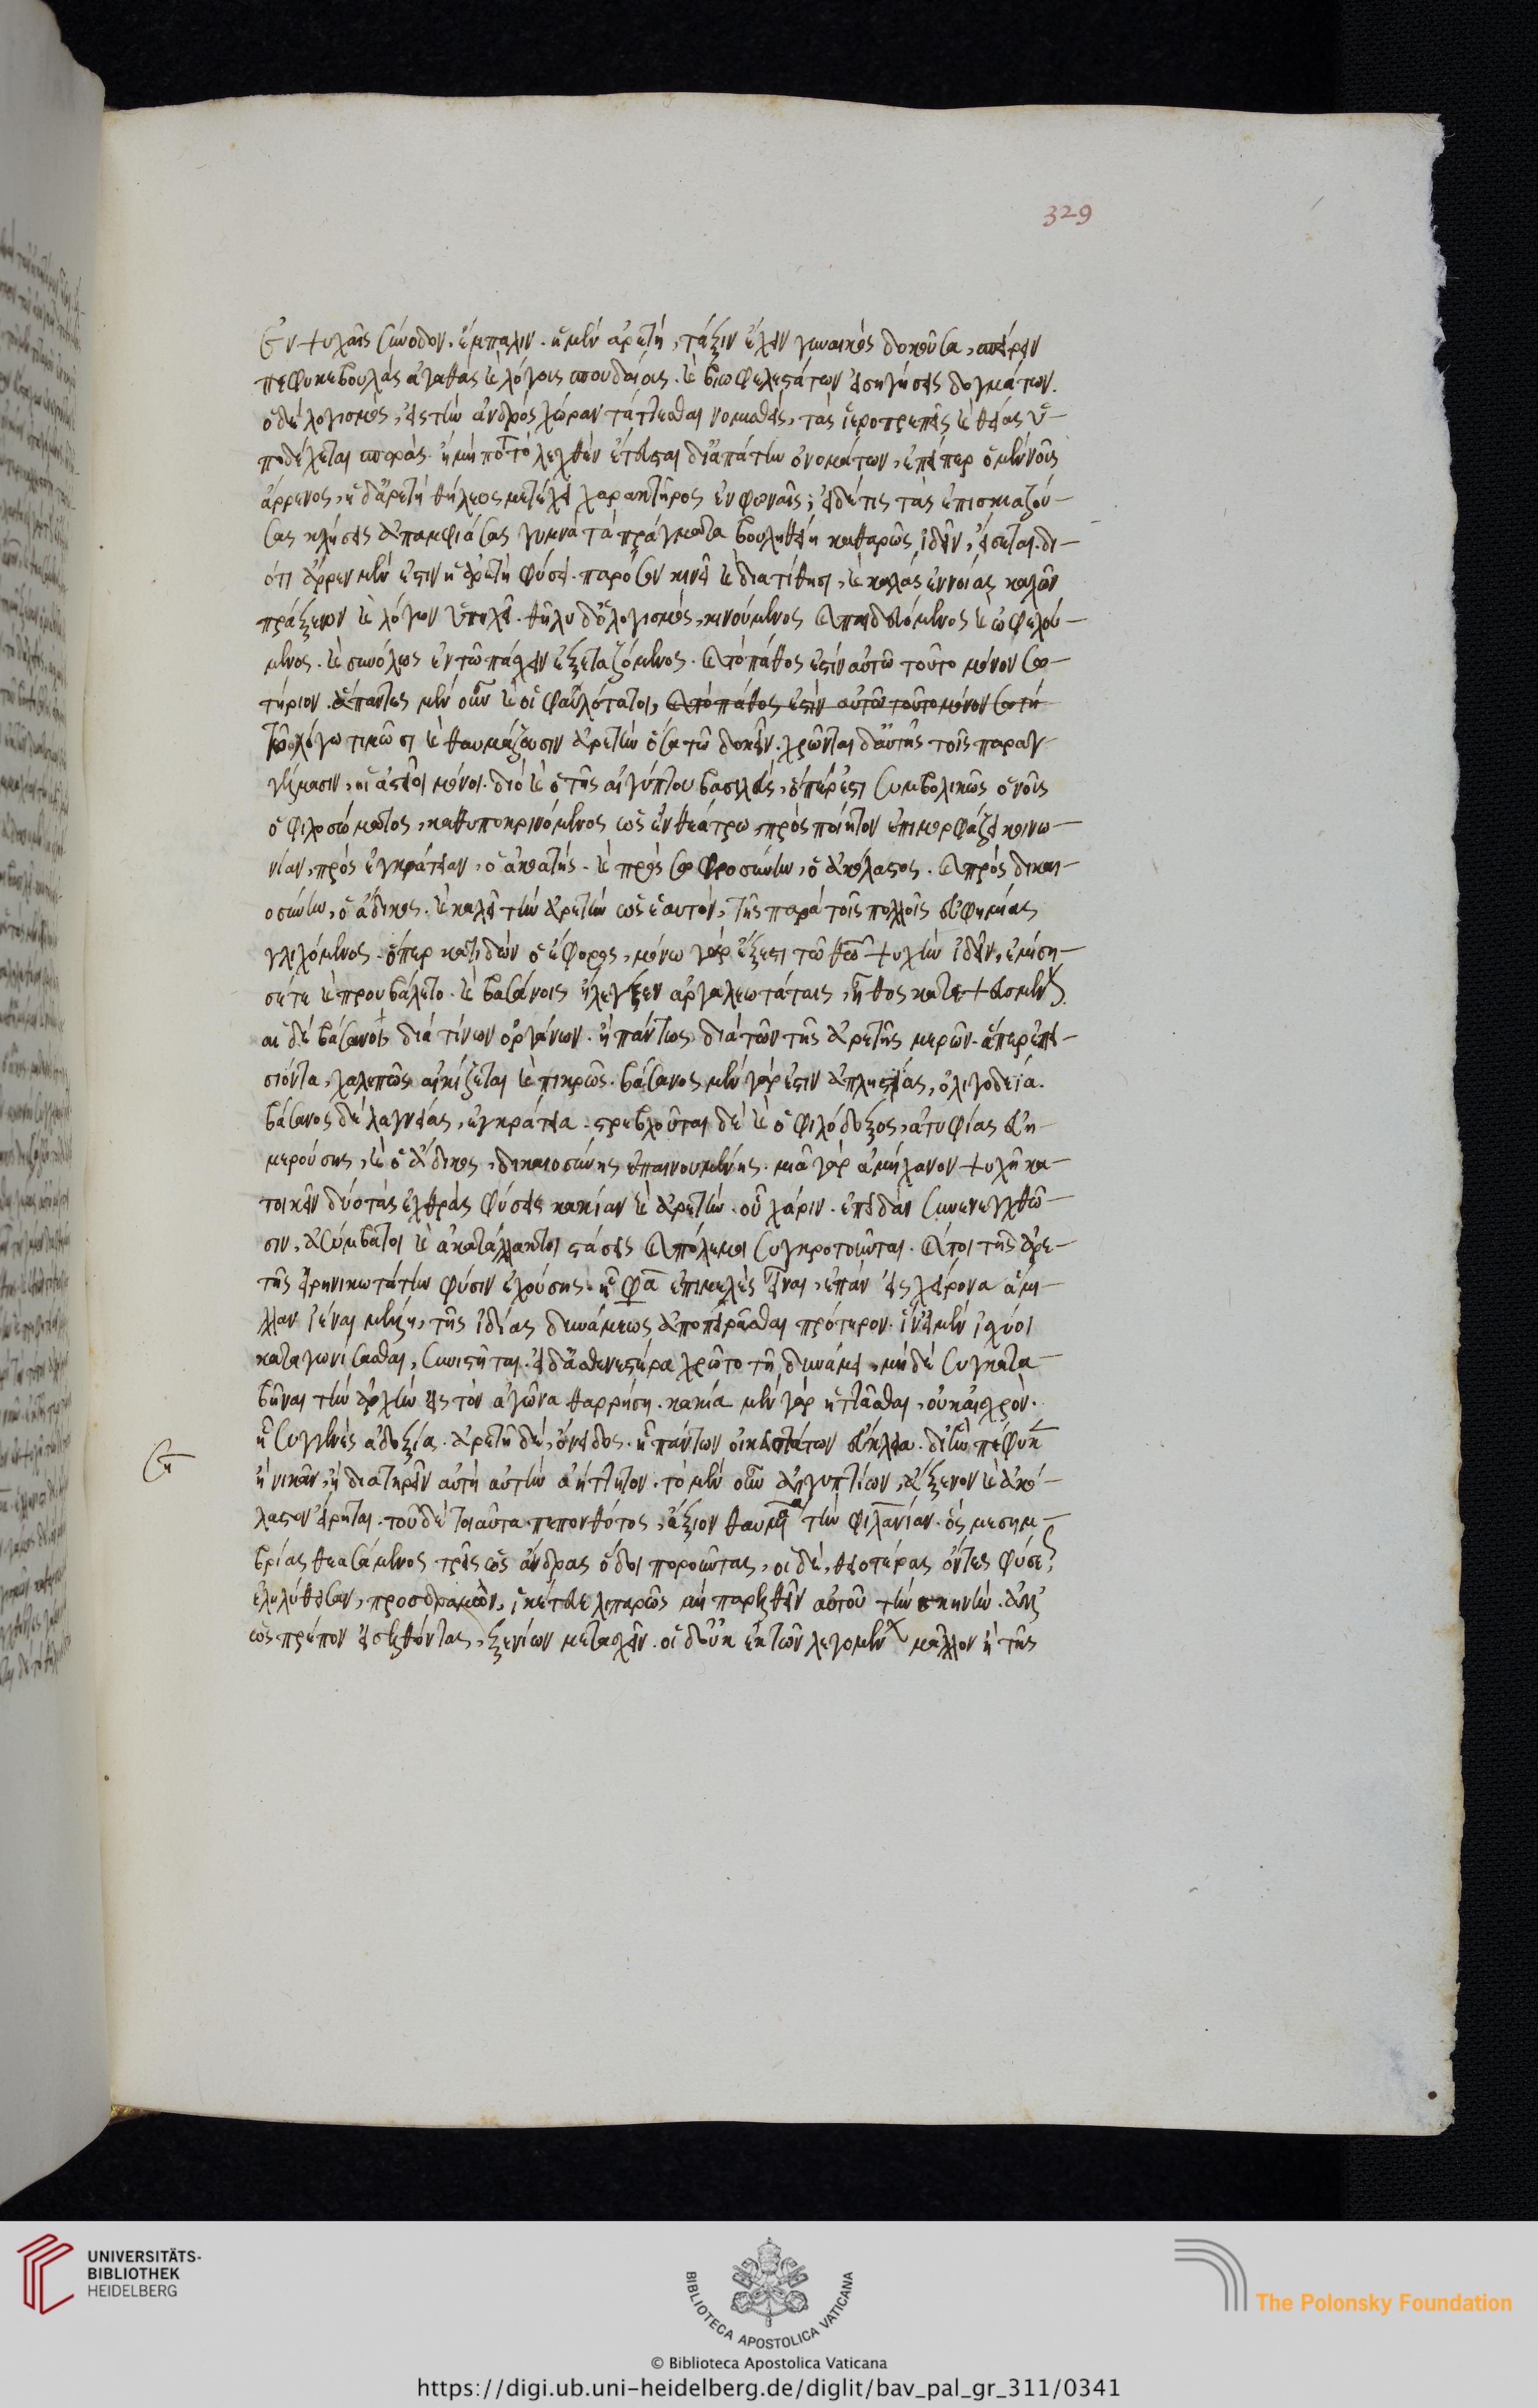 329
Ἐν ψυχαῖς σύνοδον. ἔμπαλιν. ἡ μὲν ἀρετὴ, τάξιν ἔχειν γυναικὸς δοκοῦσα, σπείρειν
πέφυκε βουλὰς ἀγαθὰς καὶ λόγοις σπουδαίοις. καὶ βιωφελεστάτων εἰσηγήσεις δογμάτων.
ὁ δὲ λογισμὸς, εἰς τὴν ἀνδρὸς χώραν τάττεσθαι νομισθεὶς, τὰς ἱεροπρεπεῖς καὶ θείας ὑ-
ποδέχεται σπορὰς. ἢ μήποτε τὸ λεχθὲν ἔψευσται δι' ἀπάτην ὀνομάτων, ἐπείπερ ὁ μὲν νοῦς
ἄρρενος, ἡ δ' ἀρετὴ θήλεος μετέχει χαρακτῆρος ἐν φωναῖς; εἰ δέ τις τὰς ἐπισκιαζού-
σας κλήσεις ἀπαμφιάσας γυμνὰ τὰ πράγματα βουληθείη καθαρῶς ἰδεῖν, εἴσεται. δι-
ότι ἄρρεν μέν ἐστιν ἡ ἀρετὴ φύσει. παρόσον κινεῖ καὶ διατίθησι, καὶ καλὰς ἐννοίας καλῶν
πράξεων καὶ λόγων ὑπηχεῖ. θῆλυ δ' ὁ λογισμὸς, κινούμενος καὶ παιδευόμενος καὶ ὠφελού-
μενος. καὶ συνόλως ἐν τῷ πάσχειν ἐξεταζόμενος. καὶ τὸ πάθος ἐστὶν αὐτῷ τοῦτο μόνον σω-
τήριον. ἅπαντες μὲν οὖν καὶ οἱ φαυλότατοι, καὶ τὸ πάθος ἐστὶν αὐτῶν τοῦτο μόνον σωτή
τῷ λόγῳ τιμῶσι καὶ θαυμάζουσιν ἀρετὴν ὅσα τῷ δοκεῖν. χρῶνται δ' αὐτῆς τοῖς παραγ-
γέλμασιν, οἱ ἀστεῖοι μόνοι. διὸ καὶ ὁ τῆς αἰγύπτου βασιλεὺς, ὅπέρ ἐστι συμβολικῶς ὁ νοῦς
ὁ φιλοσώματος, καθυποκρινόμενος ὡς ἐν θεάτρῳ, προσποίητον ἐπιμορφάζει κοινω-
νίαν, πρὸς ἐγκράτειαν, ὁ ἀκρατής. καὶ πρὸς σωφροσύνην, ὁ ἀκόλαστος. καὶ πρὸς δικαι-
οσύνην, ὁ ἄδικος. καὶ καλεῖ τὴν ἀρετὴν ὡς ἑαυτὸν, τῆς παρὰ τοῖς πολλοῖς εὐφημίας
γλιχόμενος. ὅπερ κατιδὼν ὁ ἔφορος, μόνῳ γὰρ ἔξεστι τῷ θεῷ ψυχὴν ἰδεῖν, ἐμίση-
σέ τε καὶ προυβάλετο. καὶ βασάνοις ἤλεγξεν ἀργαλεωτάταις, ἦθος κατεψευσμένον.
αἱ δὲ βάσανοι, διὰ τίνων ὀργάνων. ἢ πάντως διὰ τῶν τῆς ἀρετῆς μερῶν. ἅπερ ἐπει-
σιόντα, χαλεπῶς αἰκίζεται καὶ πικρῶς. βάσανος μὲν γάρ ἐστιν ἀπληστίας, ὀλιγοδεΐα.
βάσανος δὲ λαγνείας, ἐγκράτεια. στρεβλοῦται δὲ καὶ ὁ φιλόδοξος, ἀτυφίας εὐη-
μερούσης, καὶ ὁ ἄδικος, δικαιοσύνης ἐπαινουμένης. μιᾷ γὰρ ἀμήχανον ψυχῇ κα-
τοικεῖν δύο τὰς ἐχθρὰς φύσεις κακίαν καὶ ἀρετήν. οὗ χάριν. ἐπειδὰν συνενεχθῶ-
σιν, ἀσύμβατοι καὶ ἀκατάλλακτοι στάσεις καὶ πόλεμοι συγκροτοῦνται. καίτοι τῆς ἀρε-
τῆς εἰρηνικωτάτην φύσιν ἐχούσης. ᾗ φασὶ ἐπιμελὲς εἶναι, ἐπὰν εἰς χειρόνα ἅμι-
λλαν ἰέναι μέλλῃ, τῆς ἰδίας δυνάμεως ἀποπειρᾶσθαι πρότερον. ἵν' εἰ μὲν ἰσχύοι
καταγωνίσασθαι, συνιστῆται. εἰ δ' ἀσθενεστέρᾳ χρῷτο τῇ δυνάμει, μηδὲ συγκατα-
βῆναι τὴν ἀρχὴν εἰς τὸν ἀγῶνα θαρρήσῃ. κακία μὲν γὰρ ἡττᾶσθαι, οὐκ αἰσχρὸν.
ᾗ συγγενὲς ἀδοξία. ἀρετῇ δὲ, ὄνειδος. ᾗ πάντων οἰκειότατον εὔκλεια. δι' ἣν πέφυκεν
ἢ νικᾶν, ἢ διατηρεῖν αὐτὴ αὑτὴν ἀήττητον. τὸ μὲν οὖν αἰγυπτίων, ἄξενον καὶ ἀκό-
λαστον εἴρηται. τοῦ δὲ τοιαῦτα πεπονθότος, ἄξιον θαυμάσαι τὴν φιλανθρωπίαν. ὃς μεσημ-
βρίας θεασάμενος τρεῖς ὡς ἄνδρας ὁδοιποροῦντας, οἱ δὲ, θειοτέρας ὄντες φύσεως
ἐλελήθεσαν, προσδραμὼν, ἱκέτευε λιπαρῶς μὴ παρελθεῖν αὐτοῦ τὴν σκηνήν. ἀλλ'
ὡς πρέπον εἰσελθόντας, ξενίων μετασχεῖν. οἱ δ' οὐκ ἐκ τῶν λεγομένων μᾶλλον ἢ τῆς
UNIVERSITÄTS-
BIBLIOTHEK
HEIDELBERG
BIBLIOTECA APOSTOLICA VATICANA
The Polonsky Foundation
© Biblioteca Apostolica Vaticana
https://digi.ub.uni-heidelberg.de/diglit/bav_pal_gr_311/0341